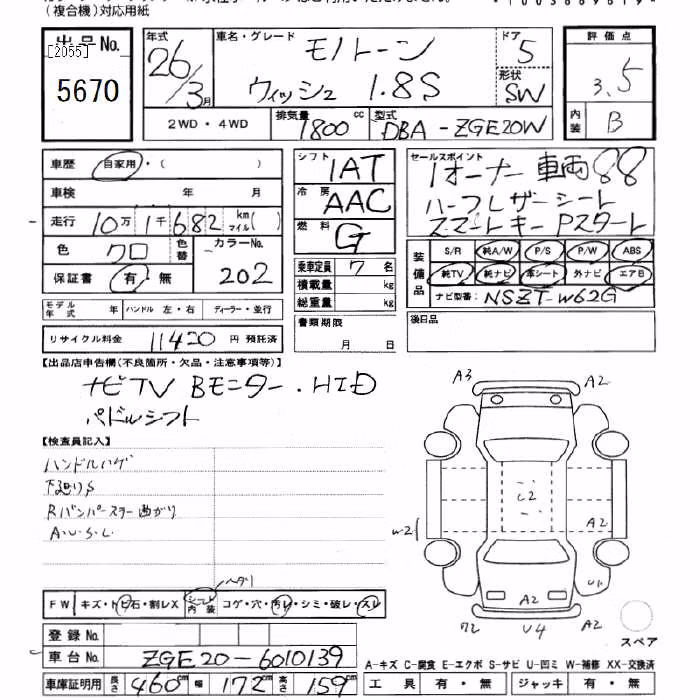 (複合機)対応用紙
出品No.
[2055]
5670
年式 26/3月
車名・グレード モノトーン
ウィッシュ 1.8S
ドア 5
形状 SW
評価点 3.5
内装 B
2WD・4WD 排気量 1800 cc 型式 DBA-ZGE20W
車歴 自家用・( )
車検 年 月
走行 10万1千682 km マイル( )
色 クロ 色替 カラーNo. 202
保証書 有・無
モデル年式 年 ハンドル 左・右 ディーラー・並行
リサイクル料金 11420 円 預託済
シフト IAT
冷房 AAC
燃料 G
乗車定員 7 名
積載量 kg
総重量 kg
書類期限
月 日
セールスポイント 1オーナー 車両88
ハーフレザーシート
スマートキー Pスタート
装備品 S/R 純A/W P/S P/W ABS
純TV 純ナビ 本シート 外ナビ エアB
ナビ型番: NSZT-W62G
後日品
【出品店申告欄(不良箇所・欠品・注意事項等)】
ナビTV Bモニター.HID
パドルシフト
【検査員記入】
ハンドルハゲ
下廻りS
Rバンパーステー曲がり
A.U.S.L.
ヘタリ
FW キズ・トビ石・割レX シート内装 コゲ・穴・汚レ・シミ・破レ・スレ
登録No.
車台No. ZGE20-6010139
車庫証明用 長さ 460cm 幅 172cm 高さ 159cm
A3 A2
C2
W2 A2
A2 U1
72 U4 A2
スペア
A-キズ C-腐食 E-エクボ S-サビ U-凹ミ W-補修 XX-交換済
工具 有・無 ジャッキ 有・無